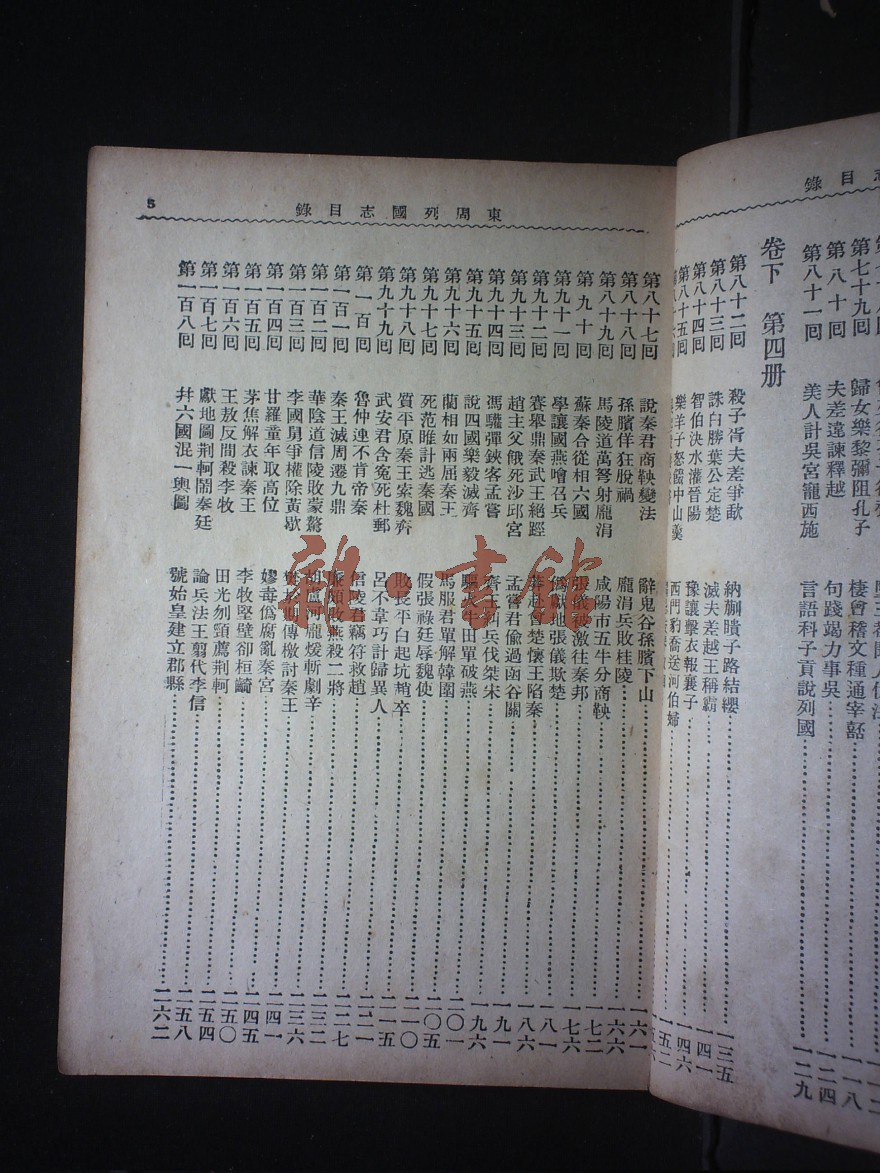 錄目志
第七十九回 歸女樂黎彌阻孔子 棲會稽文種通宰嚭 一一八
第八十回 夫差違諫釋越 句踐竭力事吳 一二四
第八十一回 美人計吳宮寵西施 言語科子貢說列國 一二九
卷下 第四册
第八十二回 殺子胥夫差爭歃 納蒯瞶子路結纓 一三五
第八十三回 誅白勝葉公定楚 滅夫差越王稱霸 一四一
第八十四回 智伯決水灌晉陽 豫讓擊衣報襄子 一四六
第八十五回 樂羊子怒餟中山羹 西門豹喬送河伯婦 一五二
錄目志國列周東 5
第八十七回 說秦君商鞅變法 辭鬼谷孫臏下山 一六一
第八十八回 孫臏佯狂脫禍 龐涓兵敗桂陵 一六六
第八十九回 馬陵道萬弩射龐涓 咸陽市五牛分商鞅 一七二
第九十回 蘇秦合從相六國 張儀被激往秦邦 一七六
第九十一回 學讓國燕噲召兵 僞獻地張儀欺楚 一八一
第九十二回 賽舉鼎秦武王絕脛 莽赴會楚懷王陷秦 一八六
第九十三回 趙主父餓死沙邱宮 孟嘗君偷過函谷關 一九一
第九十四回 馮驩彈鋏客孟嘗 齊王糾兵伐桀宋 一九六
第九十五回 說四國樂毅滅齊 驅火牛田單破燕 二〇一
第九十六回 藺相如兩屈秦王 馬服君單解韓圍 二〇五
第九十七回 死范睢計逃秦國 假張祿廷辱魏使 二一〇
第九十八回 質平原秦王索魏齊 敗長平白起坑趙卒 二一五
第九十九回 武安君含冤死杜郵 呂不韋巧計歸異人 二二一
第一百回 魯仲連不肯帝秦 信陵君竊符救趙 二二七
第一百一回 秦王滅周遷九鼎 廉頗敗燕殺二將 二三二
第一百二回 華陰道信陵敗蒙驁 胡盧河龐煖斬劇辛 二三六
第一百三回 李國舅爭權除黃歇 樊於期傳檄討秦王 二四一
第一百四回 甘羅童年取高位 嫪毐僞腐亂秦宮 二四五
第一百五回 茅焦解衣諫秦王 李牧堅壁卻桓齮 二五〇
第一百六回 王敖反間殺李牧 田光刎頸薦荊軻 二五四
第一百七回 獻地圖荊軻鬧秦廷 論兵法王翦代李信 二五八
第一百八回 幷六國混一輿圖 號始皇建立郡縣 二六二